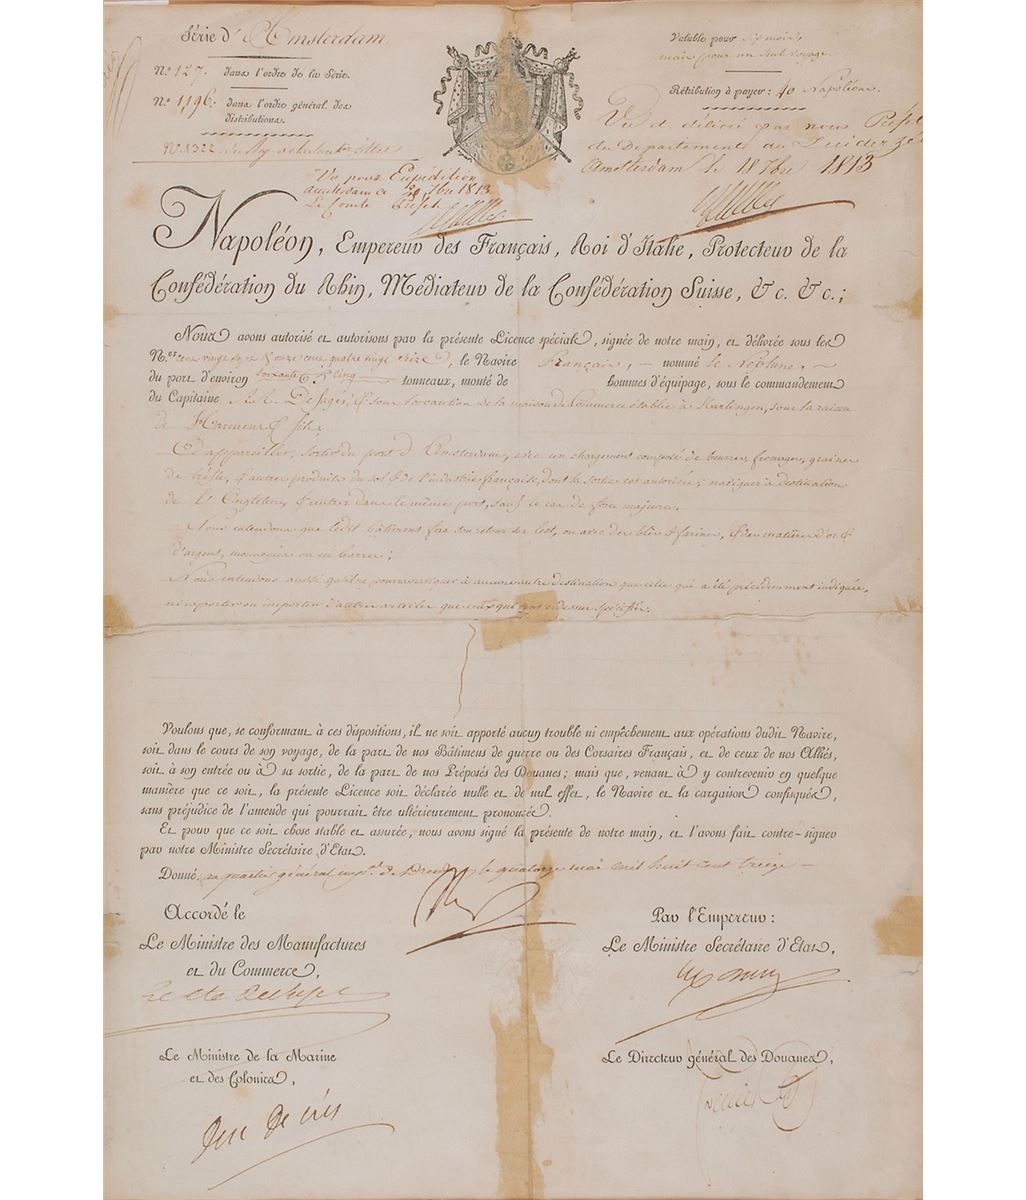 Série d'Amsterdam.
N.º 127. dans l'ordre de la Série.
N.º 1,196. dans l'ordre général des
distributions.
N.º 1322
Valable pour six mois
mais pour un seul voyage.
Rétribution à payer : 40 Napoléons.
Vu et délivré par nous Préfet
du Département du Zuiderzée
Amsterdam le 18 7bre 1813
Vu pour Expédition
Amsterdam 7bre 1813
Le Comte Préfet
Napoléon, Empereur des Français, Roi d'Italie, Protecteur de la
Confédération du Rhin, Médiateur de la Confédération Suisse, &c. &c.;
Nous avons autorisé et autorisons par la présente Licence spéciale, signée de notre main, et délivrée sous les
N.os cent vingt sept & onze cent quatre vingt seize, le Navire Français, nommé le Neptune
du port d'environ soixante & cinq tonneaux, monté de hommes d'équipage, sous le commandement
du Capitaine R. R. De Jager, & sous la caution de la maison de Commerce établie à Harlingen, sous la raison
de Harmens & fils.
D'appareiller, sortir du port d'Amsterdam, avec un chargement composé de beurre, fromages, graines
de trèfle, & autres produits du sol & de l'industrie française, dont la sortie est autorisée; naviguer à destination
de l'Angleterre, & rentrer dans le même port, sauf le cas de force majeure.
Nous entendons que ledit bâtiment fera son retour sur lest, ou avec des blés & farines, & des matières d'or &
d'argent, monnoyées ou en barres;
Nous entendons aussi qu'il ne pourra naviguer à aucune autre destination que celle qui a été précédemment indiquée,
ni exporter ou importer d'autres articles que ceux qui sont ci-dessus spécifiés.
Voulons que, se conformant à ces dispositions, il ne soit apporté aucun trouble ni empêchement aux opérations dudit Navire,
soit dans le cours de son voyage, de la part de nos Bâtimens de guerre ou des Corsaires Français, et de ceux de nos Alliés,
soit à son entrée ou à sa sortie, de la part de nos Préposés des Douanes; mais que, venant à y contrevenir en quelque
manière que ce soit, la présente Licence soit déclarée nulle et de nul effet, le Navire et la cargaison confisqués,
sans préjudice de l'amende qui pourrait être ultérieurement prononcée.
Et pour que ce soit chose stable et assurée, nous avons signé la présente de notre main, et l'avons fait contre-signer
par notre Ministre Secrétaire d'État.
Donné, au quartier général imp.al de Dresde le quatorze mai mil huit cent treize
Accordé le
Le Ministre des Manufactures
et du Commerce,
Par l'Empereur:
Le Ministre Secrétaire d'État,
Le Ministre de la Marine
et des Colonies,
Le Directeur général des Douanes,